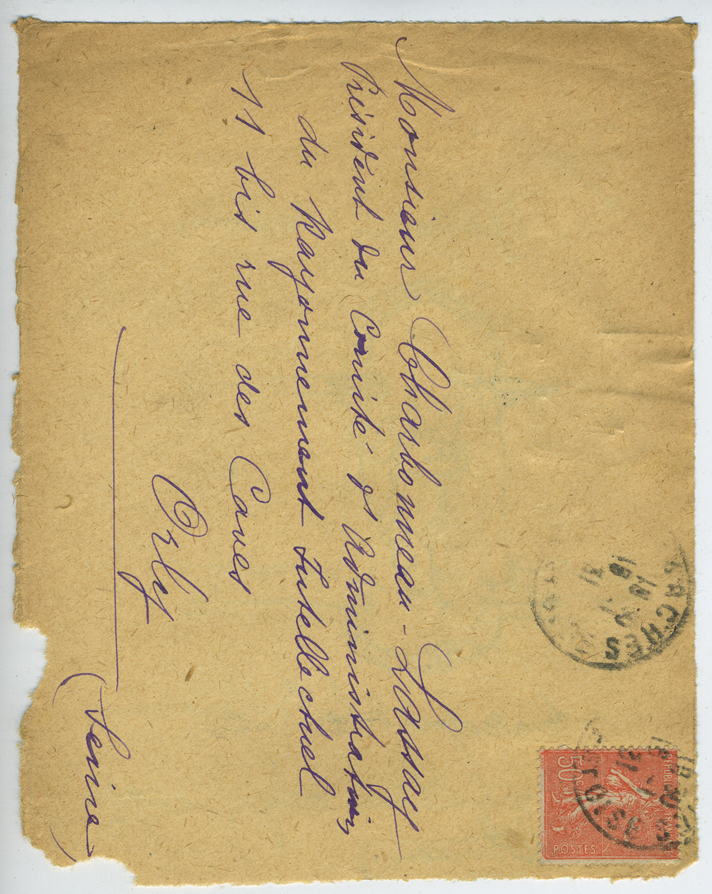 Monsieur Charbonneau-Lassay
Président du Comité d'Administration
du Rayonnement Intellectuel
11 bis rue des Caves
Orly
(Seine)
ACHÈRES
18
31
50
POSTES